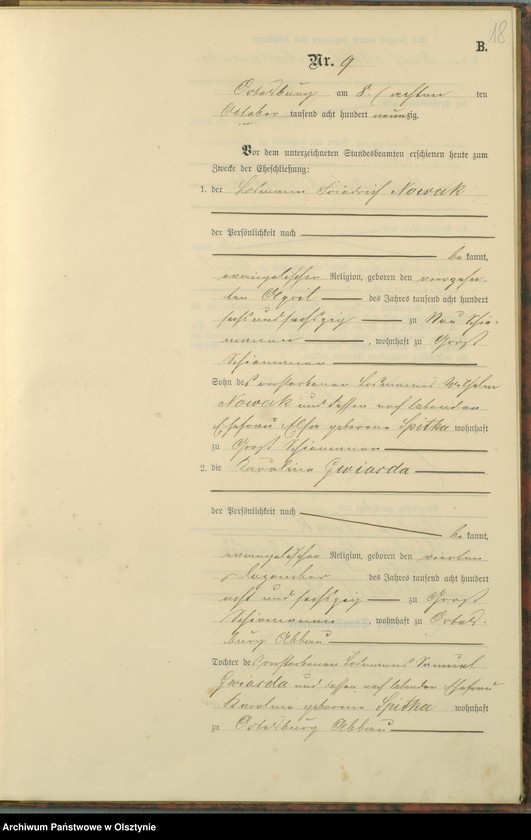 18
B.
Nr. 9
Ortelsburg am 8. (achten ten
October tausend acht hundert neunzig.
Vor dem unterzeichneten Standesbeamten erschienen heute zum
Zwecke der Eheschließung:
1. der Losmann Friedrich Nowak
der Persönlichkeit nach
be kannt,
evangelischer Religion, geboren den vierzehn-
ten April des Jahres tausend acht hundert
sechsundsechzig zu Neu Schie-
manen, wohnhaft zu Groß
Schiemanen
Sohn des verstorbenen Losmanns Wilhelm
Nowak und dessen noch lebenden
Ehefrau geborene Spitka wohnhaft
zu Groß Schiemanen
2. die Karoline Gwiasda
der Persönlichkeit nach
be kannt,
evangelischer Religion, geboren den vierten
Dezember des Jahres tausend acht hundert
acht und sechszig zu Groß
Schiemanen, wohnhaft zu Ortels-
burg Abbau
Tochter des verstorbenen Losmanns Samuel
Gwiasda und dessen noch lebenden Ehefrau
Karoline geborene Spitka wohnhaft
zu Ortelsburg Abbau
Archiwum Państwowe w Olsztynie